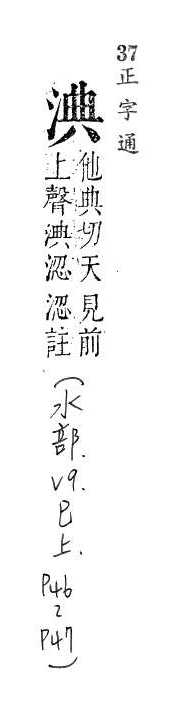 37正字通
淟
他典切天見前
上聲淟涊涊註
(水部.v9.巳上.P46~P47)